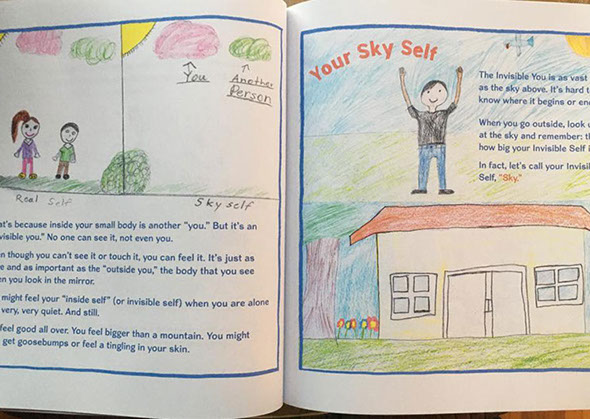 You
Another
Person
Real Self
Sky self
at's because inside your small body is another "you." But it's an
visible you." No one can see it, not even you.
n though you can't see it or touch it, you can feel it. It's just as
e and as important as the "outside you," the body that you see
en you look in the mirror.
might feel your "inside self" (or invisible self) when you are alone
very, very quiet. And still.
feel good all over. You feel bigger than a mountain. You might
get goosebumps or feel a tingling in your skin.
Your Sky Self
The Invisible You is as vast
as the sky above. It's hard t
know where it begins or en
When you go outside, look
at the sky and remember: th
how big your Invisible Self i
In fact, let's call your Invisi
Self, "Sky."